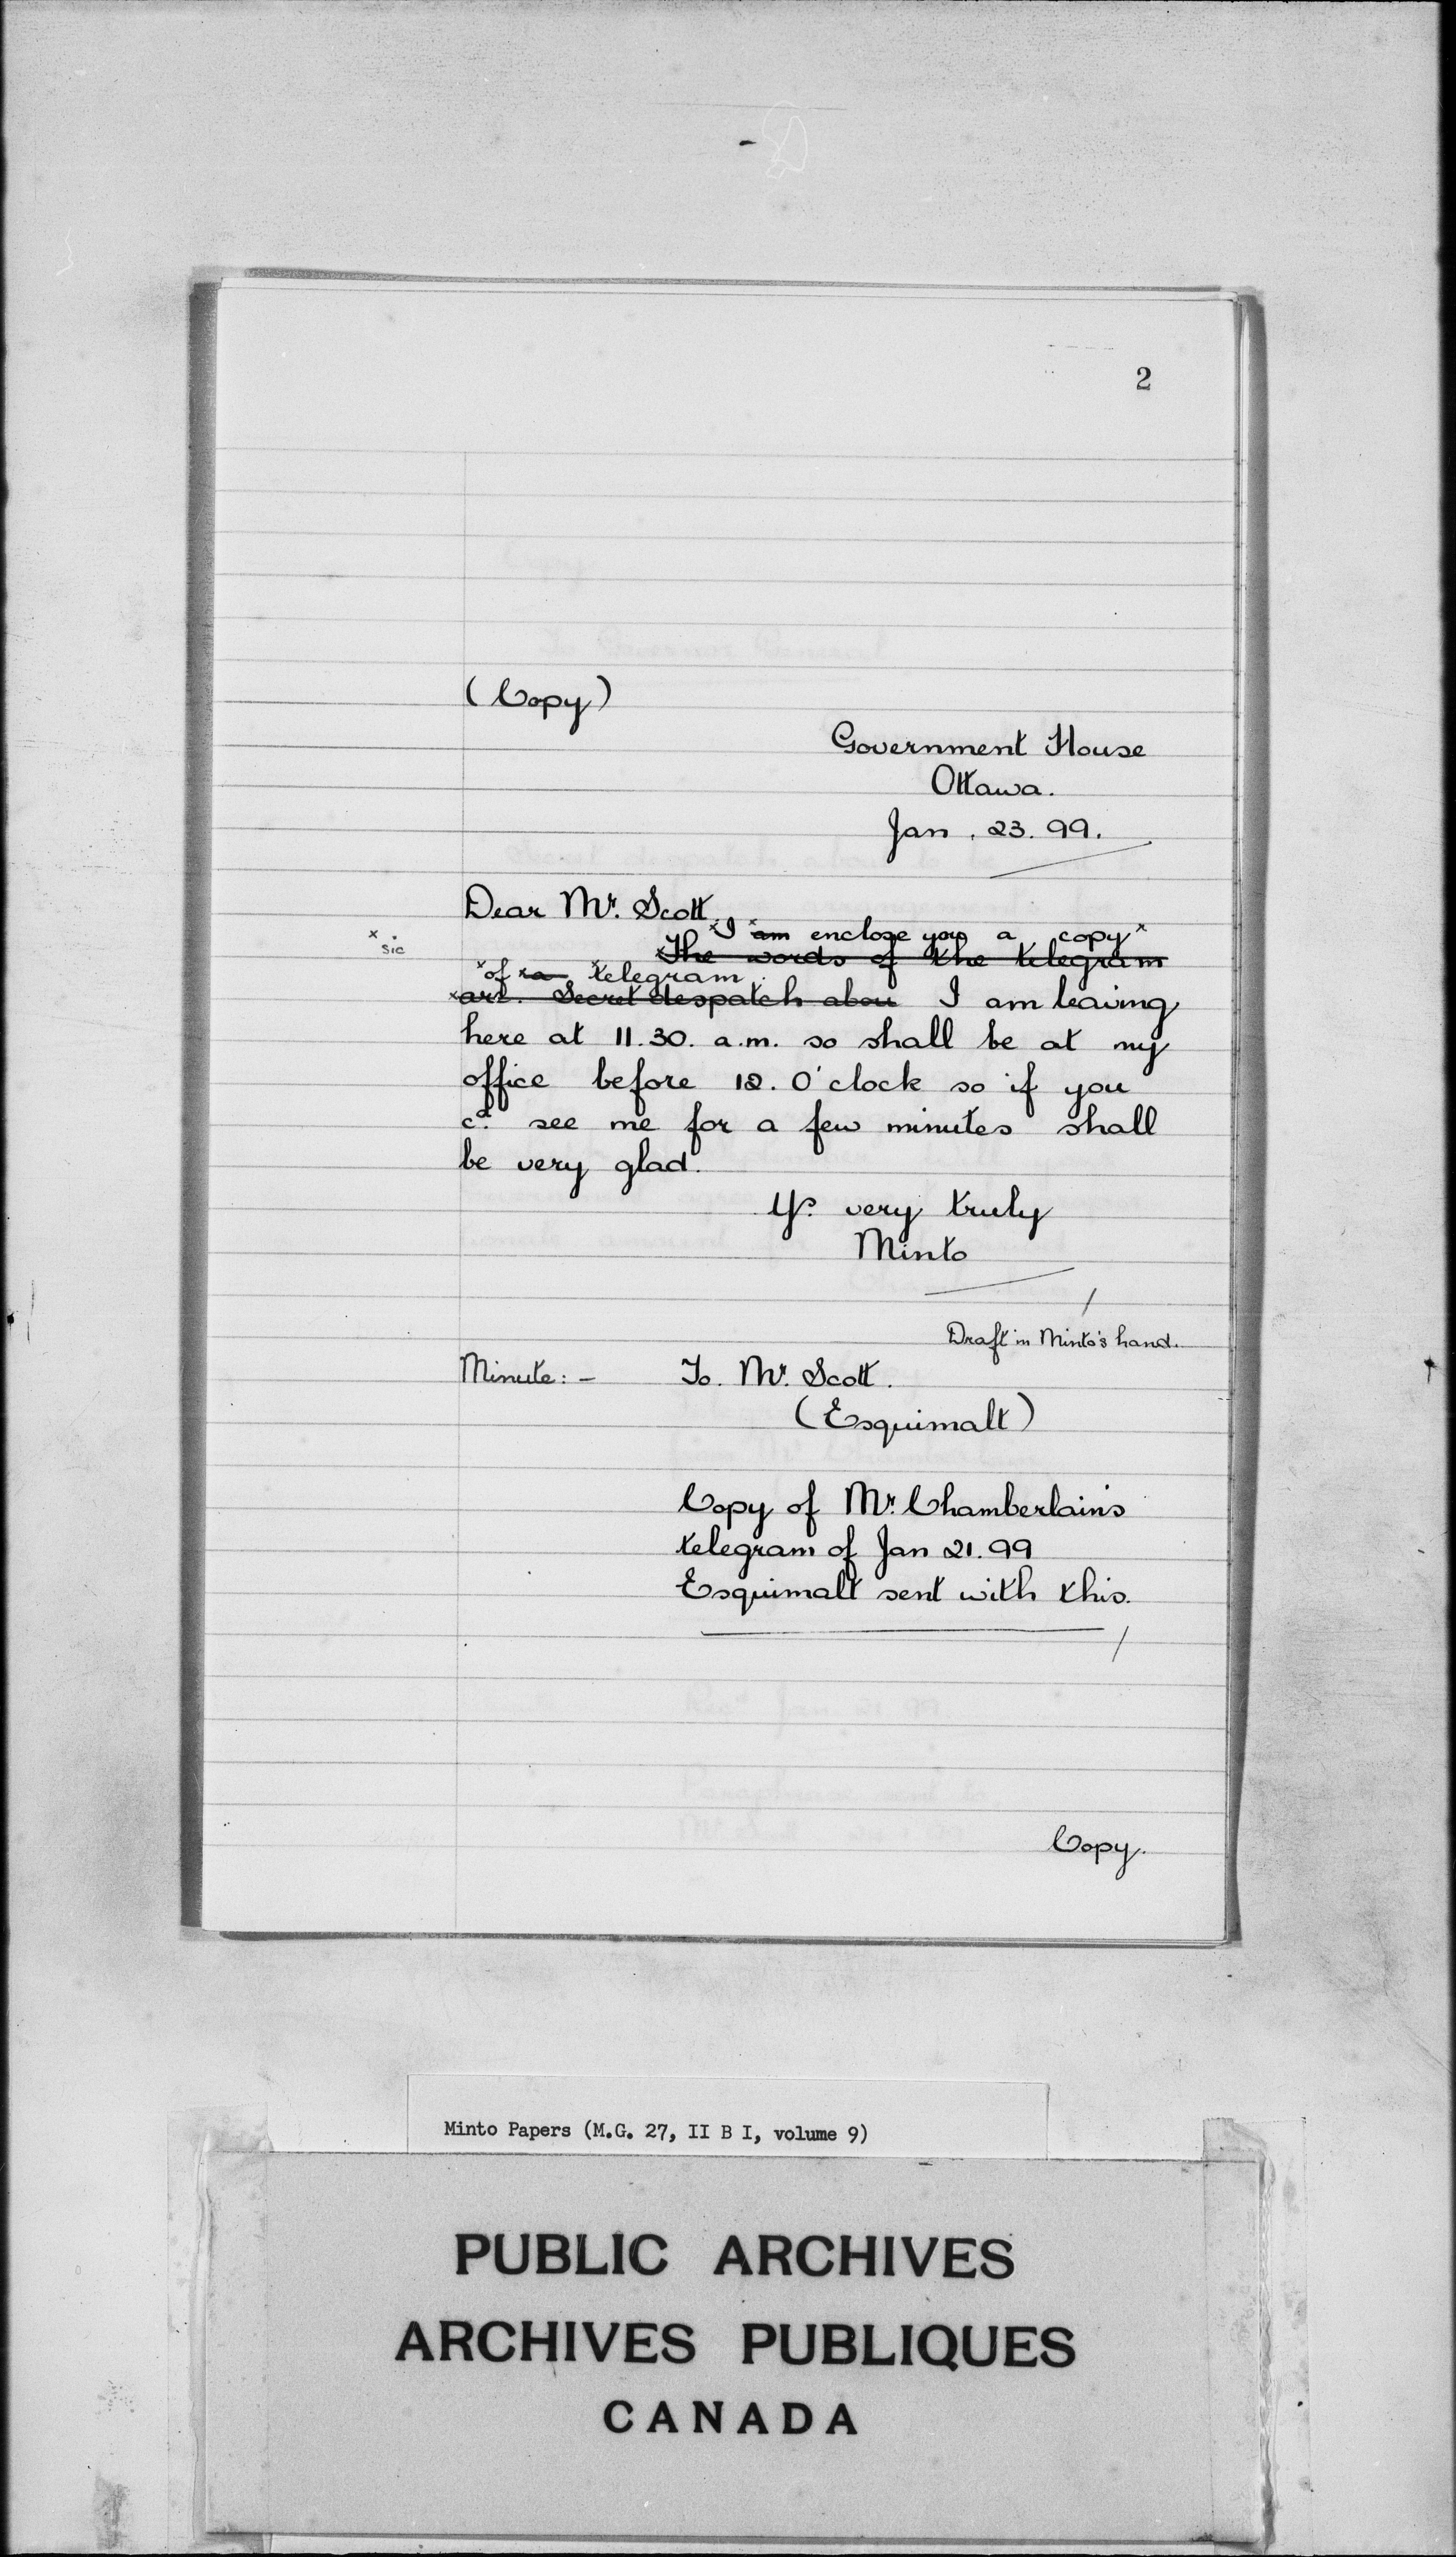 2
(Copy)
Government House
Ottawa.
Jan. 23. 99.
Dear Mr. Scott,
x sic
x I x am enclose you a copy x
x The words of the telegram
x of x a x telegram.
x are. Secret despatch abou I am leaving
here at 11.30. a.m. so shall be at my
office before 12. O'clock so if you
cd. see me for a few minutes shall
be very glad.
Yrs. very truly
Minto
Draft in Minto's hand.
Minute: - To. Mr. Scott.
(Esquimalt)
Copy of Mr. Chamberlain's
telegram of Jan 21. 99
Esquimalt sent with this.
Copy.
Minto Papers (M.G. 27, II B I, volume 9)
PUBLIC ARCHIVES
ARCHIVES PUBLIQUES
CANADA